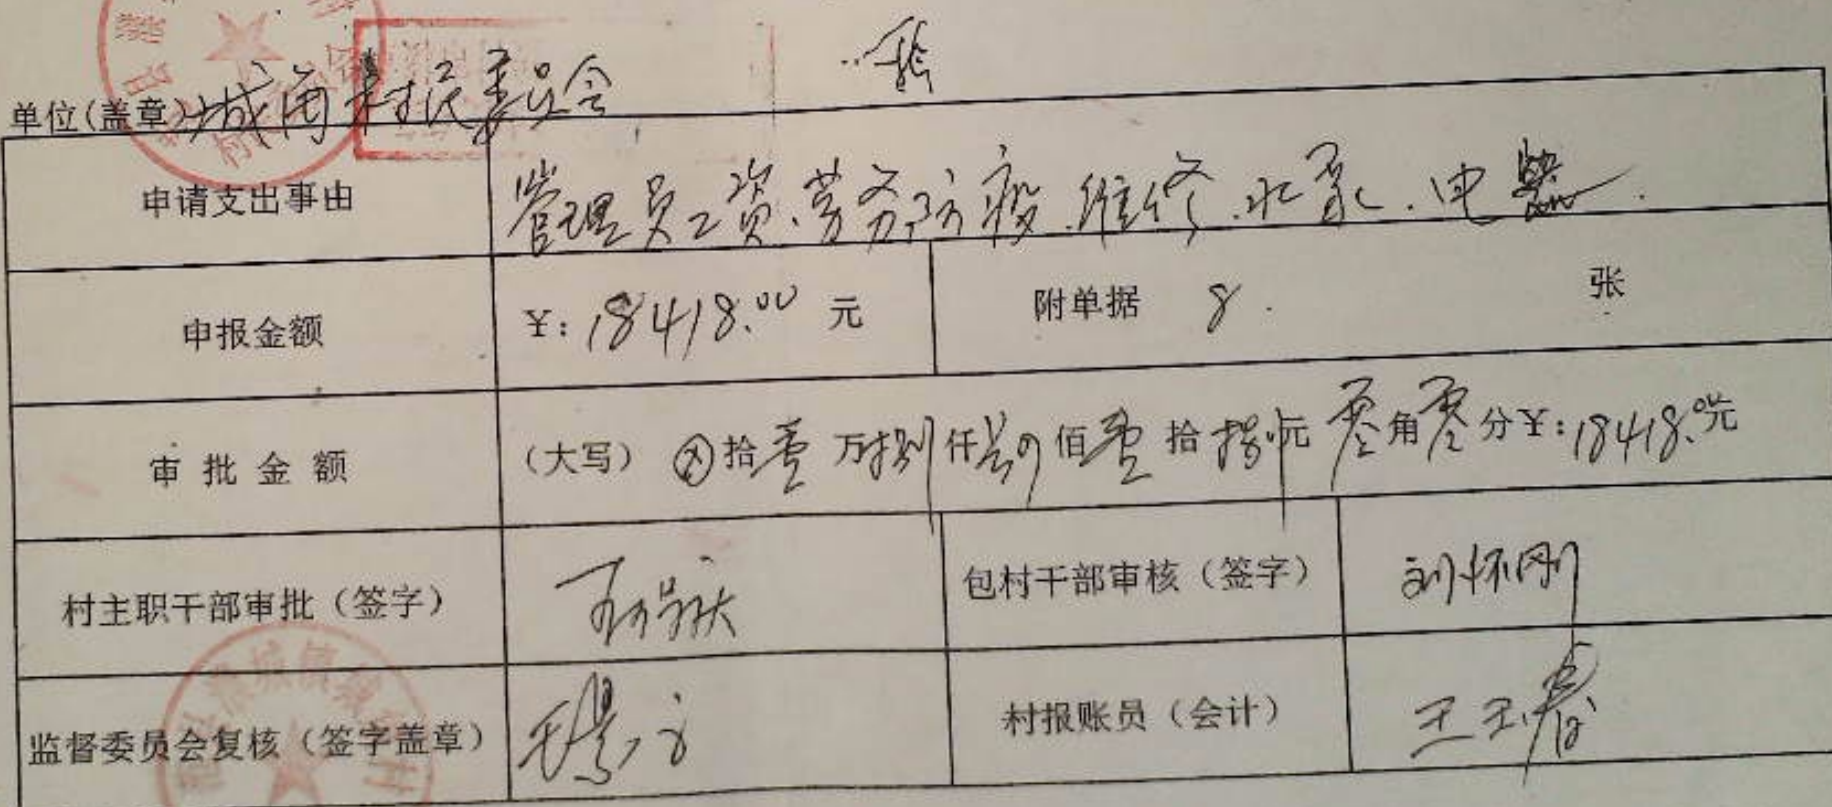 单位(盖章)城角村民委员会
申请支出事由 管理员工资.劳务防疫.维修.水泵.电器.
申报金额 ¥:18418.00元 附单据 8. 张
审批金额 (大写) ⊗拾壹万捌仟肆佰壹拾捌元零角零分¥:18418.00元
村主职干部审批(签字) 包村干部审核(签字) 刘怀刚
监督委员会复核(签字盖章) 村报账员(会计) 王玉春